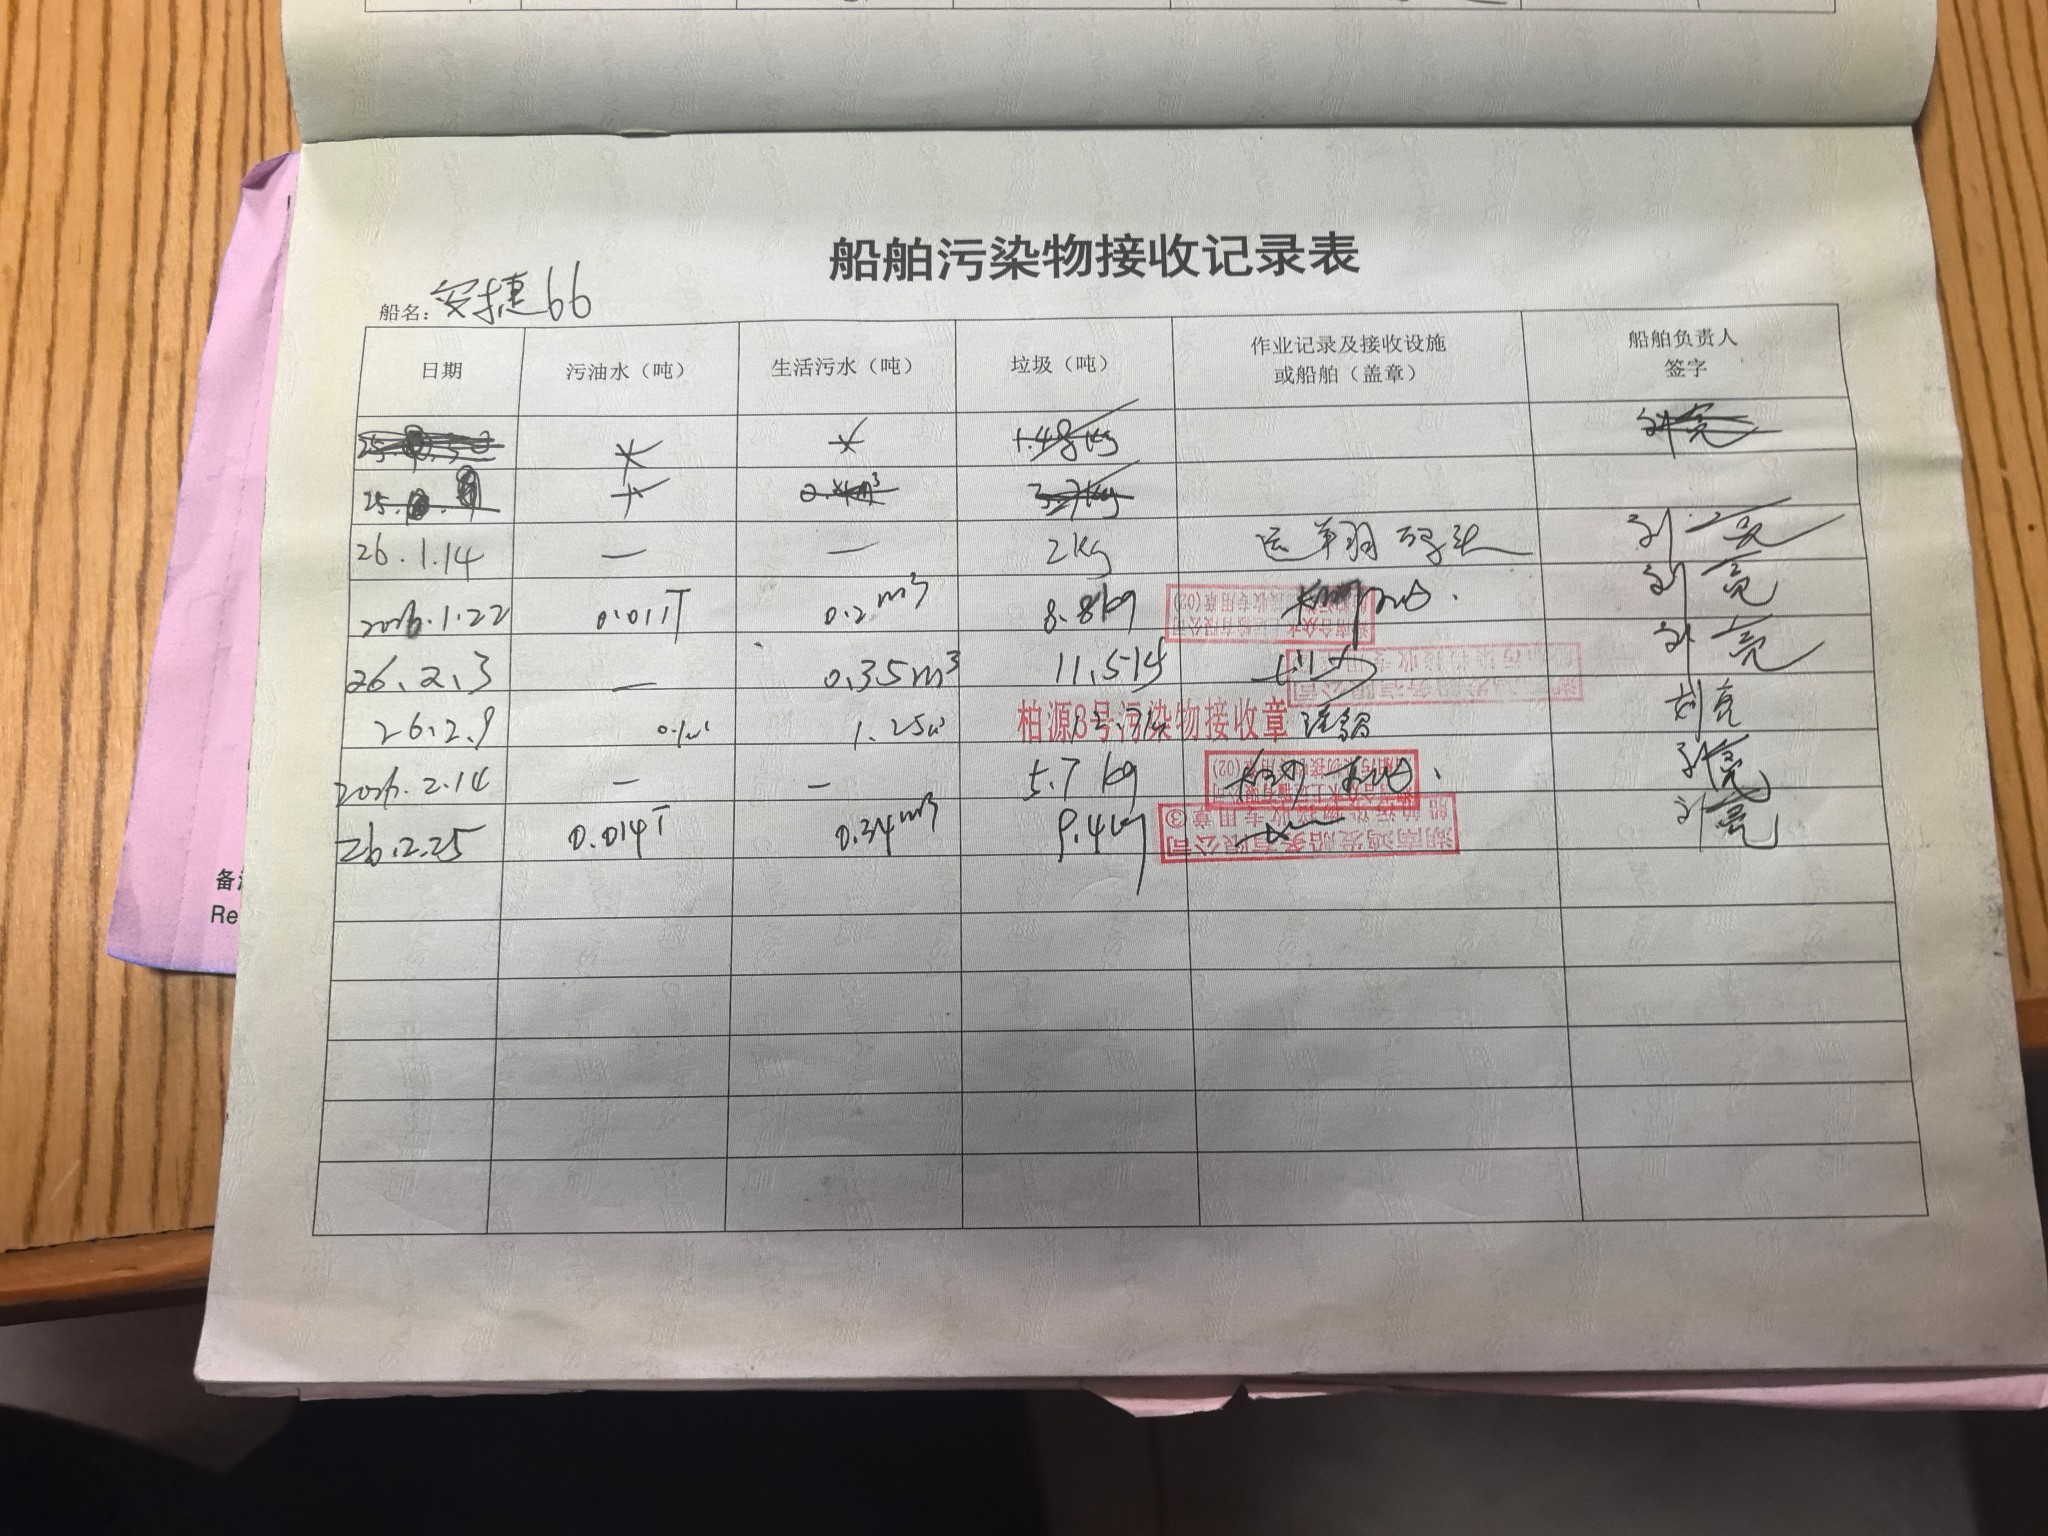 船舶污染物接收记录表
船名：安捷66
日期 污油水（吨） 生活污水（吨） 垃圾（吨） 作业记录及接收设施或船舶（盖章） 船舶负责人签字
1.48kg 刘亮
25. 3.7kg
26.1.14 — — 2kg 运翔码头 刘亮
2026.1.22 0.011T 0.2m³ 8.8kg 刘亮
26.2.3 — 0.35m³ 11.514 刘亮
26.2.9 1.25m³ 柏源8号污染物接收章 刘亮
2026.2.14 — — 5.7kg 刘亮
26.2.25 0.014T 0.34m³ 9.4kg 湖南鸿发船务有限公司 船舶污染物接收专用章③ 刘亮
备注
Re